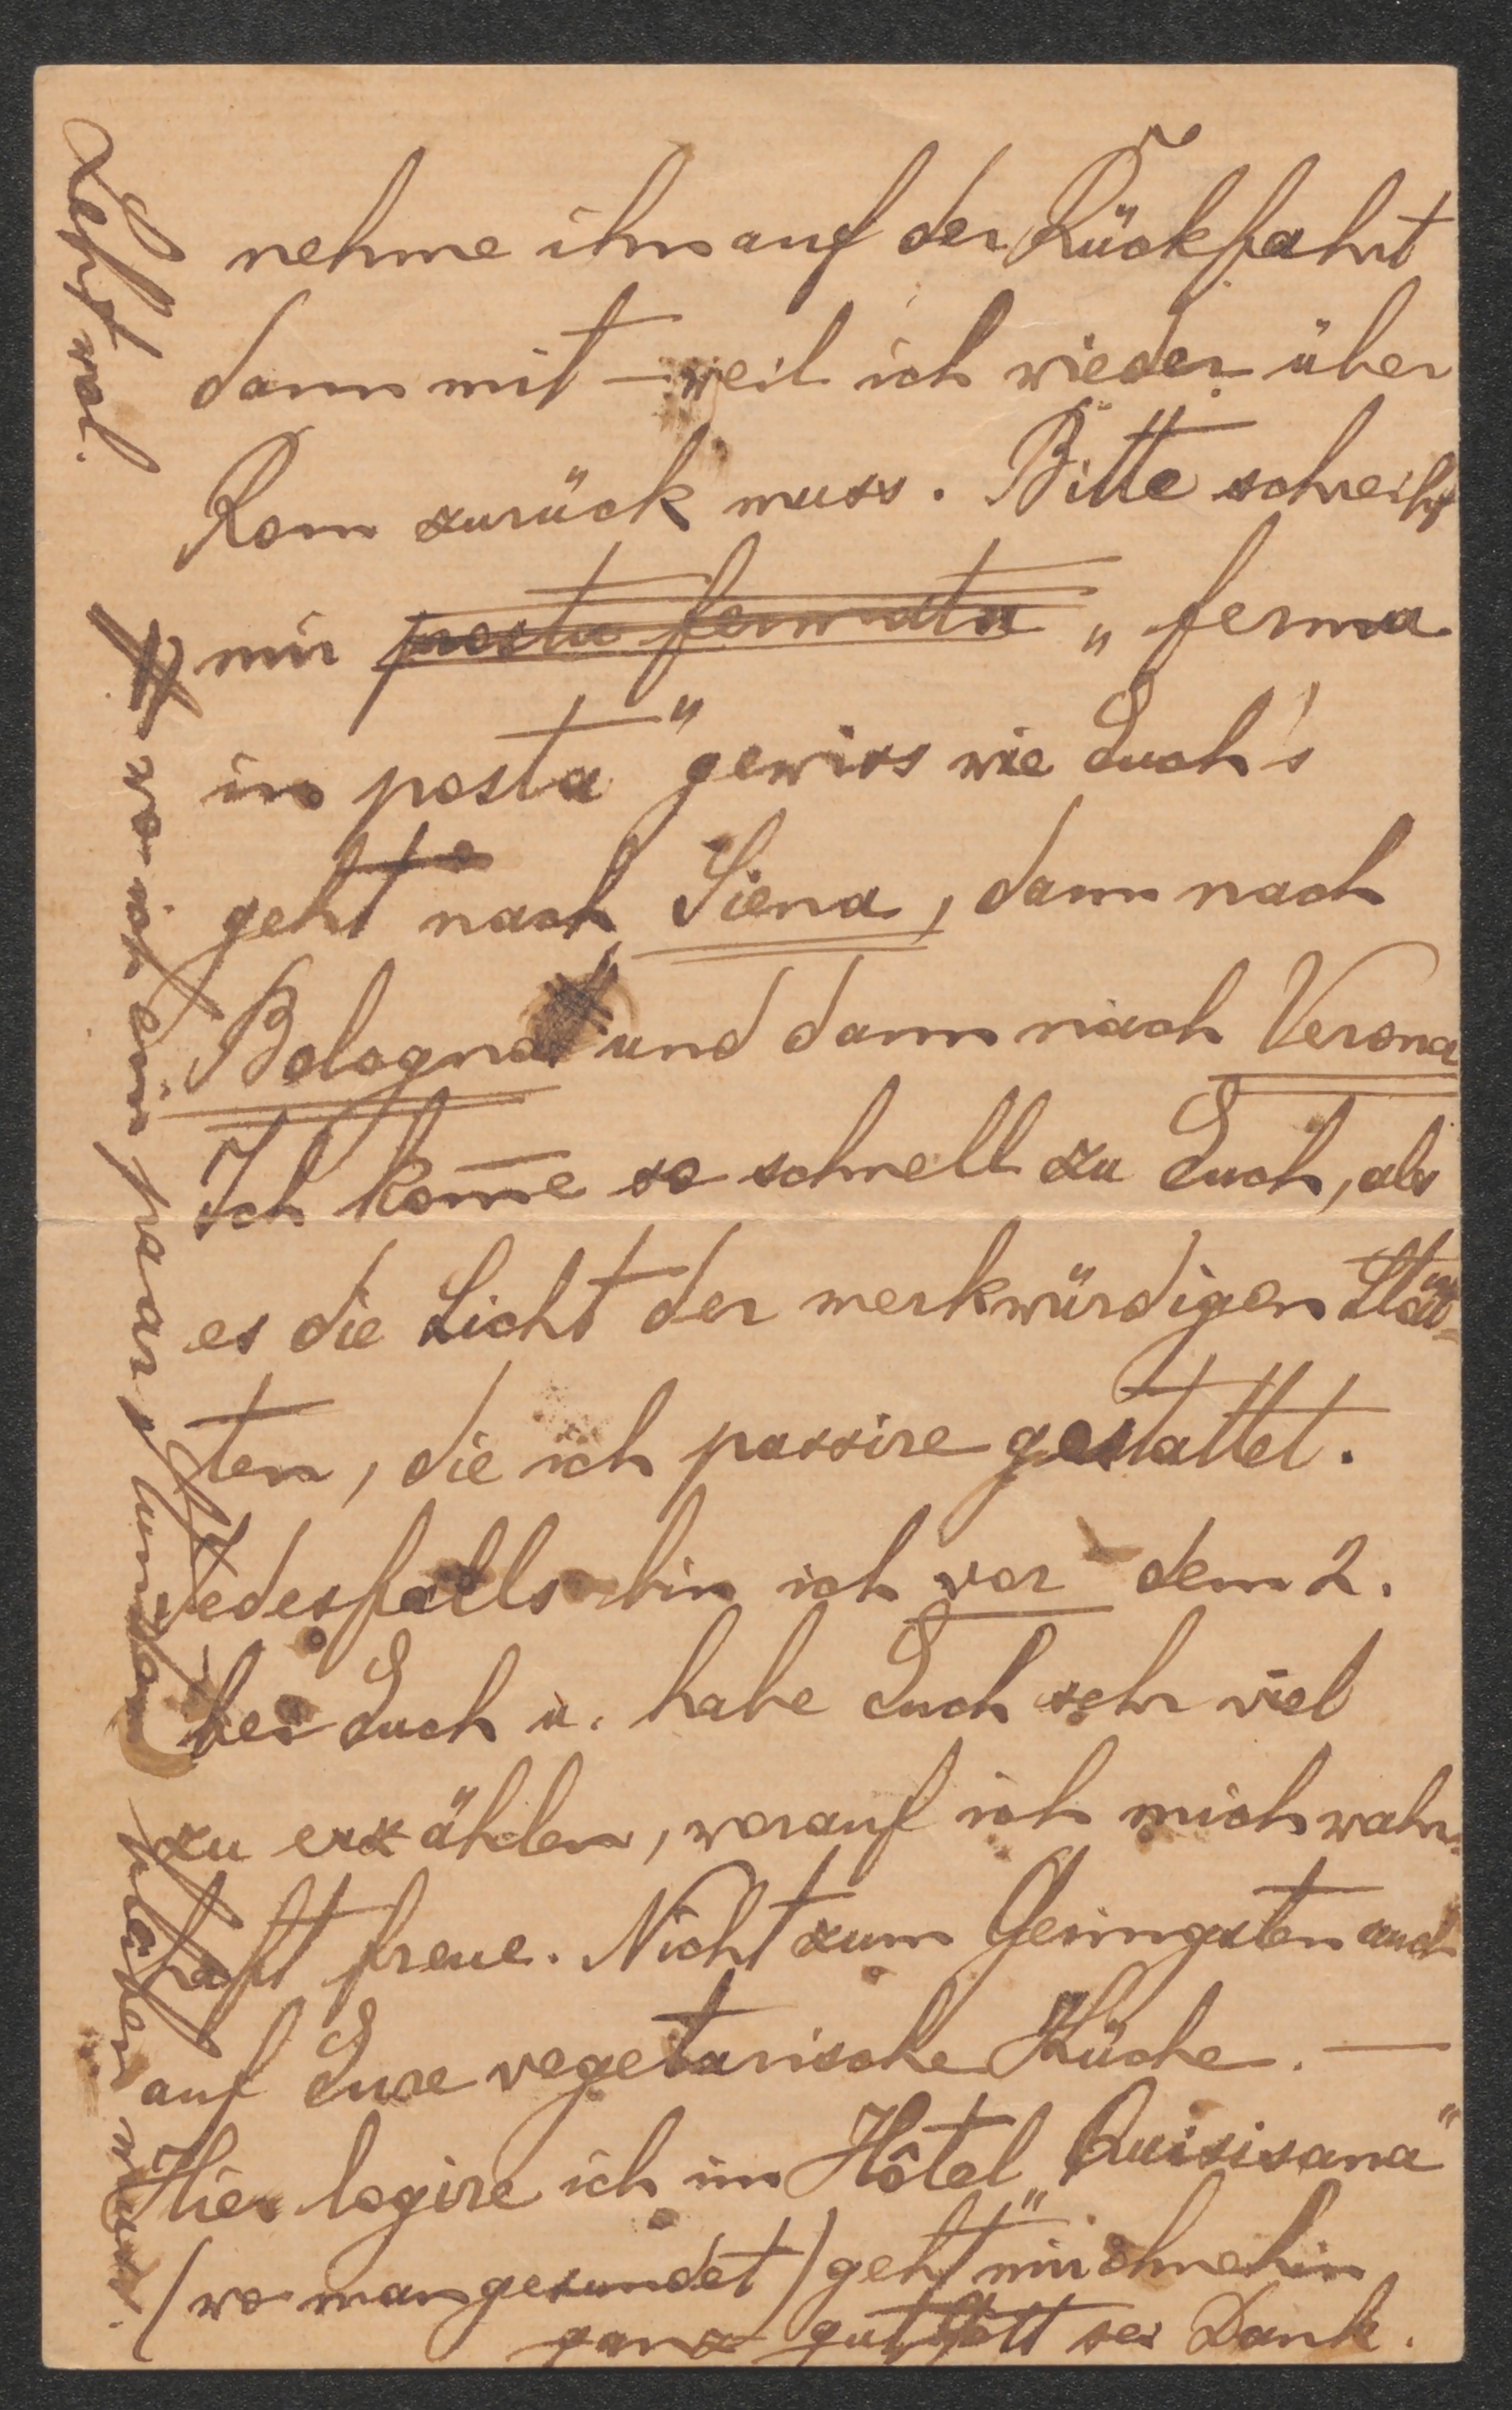 nehme ihn auf der Rückfahrt
dann mit – weil ich wieder über
Rom zurück muss. Bitte schreibt
mir posta fermata „ferma
in posta" gewiss wie Euch's
geht nach Siena, dann nach
Bologna und dann nach Verona
Ich kom̅e so schnell zu Euch, als
es die Licht der merkwürdigen Städ=
ten, die ich passire gestattet.
Jedesfalls bin ich vor dem 2.
bei Euch u. habe Euch sehr viel
zu erzählen, worauf ich mich wahr=
haft freue. Nicht zum Geringsten auch
auf Eure vegetarische Küche. —
Hier logire ich im Hôtel „Quisisana"
(wo man gesundet) geht mir ohnehin
ganz gut Gott sei Dank.
wo ich ein paar Stunden
Lebt wol.